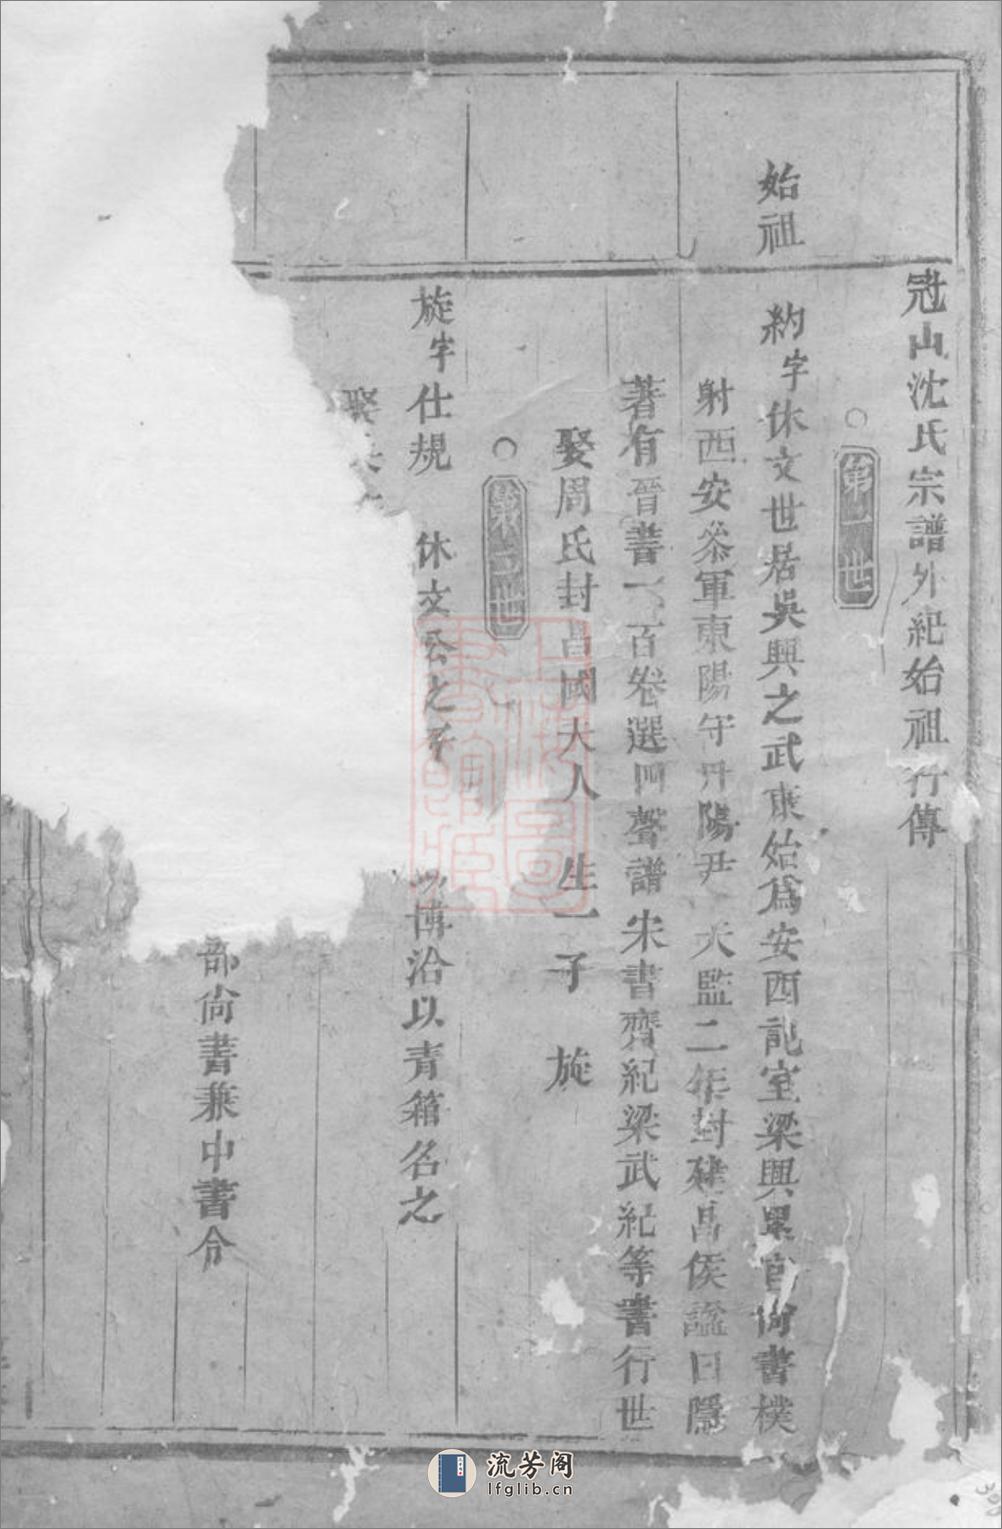 冠山沈氏宗譜外紀始祖行傳
○第一世
始祖
約字休文世居吳興之武康始爲安西記室梁興累官尚書樸
射西安叅軍東陽守丹陽尹 天監二年封建昌侯諡曰隱
著有晉書一百卷選四聲譜宋書齊紀梁武紀等書行世
娶周氏封昌國夫人 生一子 旋
○第二世
旋字仕規 休文公之子
博洽以青箱名之
娶
部尚書兼中書令
上海圖書館藏
流芳阁
lfglib.cn